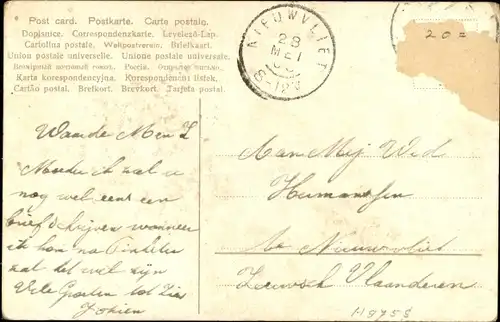 Post card. Postkarte. Carte postale.
Dopisnice. Correspondenzkarte. Levelező-Lap.
Cartolina postale. Weltpostverein. Briefkaart.
Union postale universelle. Unione postale universale.
Karta korespondencyjna. Korespondenční lístek.
Cartão postal. Brefkort. Brevkort. Tarjeta postal.
NIEUWVLIET
28
MEI
8-12V
20=
Waarde Men L
Moeder ik zal u
nog wel eens een
brief schrijven wanneer
ik kan na Pinkster
zal het wel zijn
Vele Groeten tot Ziens
Aan Mej Wed
Hermansen
te Nieuwvliet
Zeeuwsch Vlaanderen